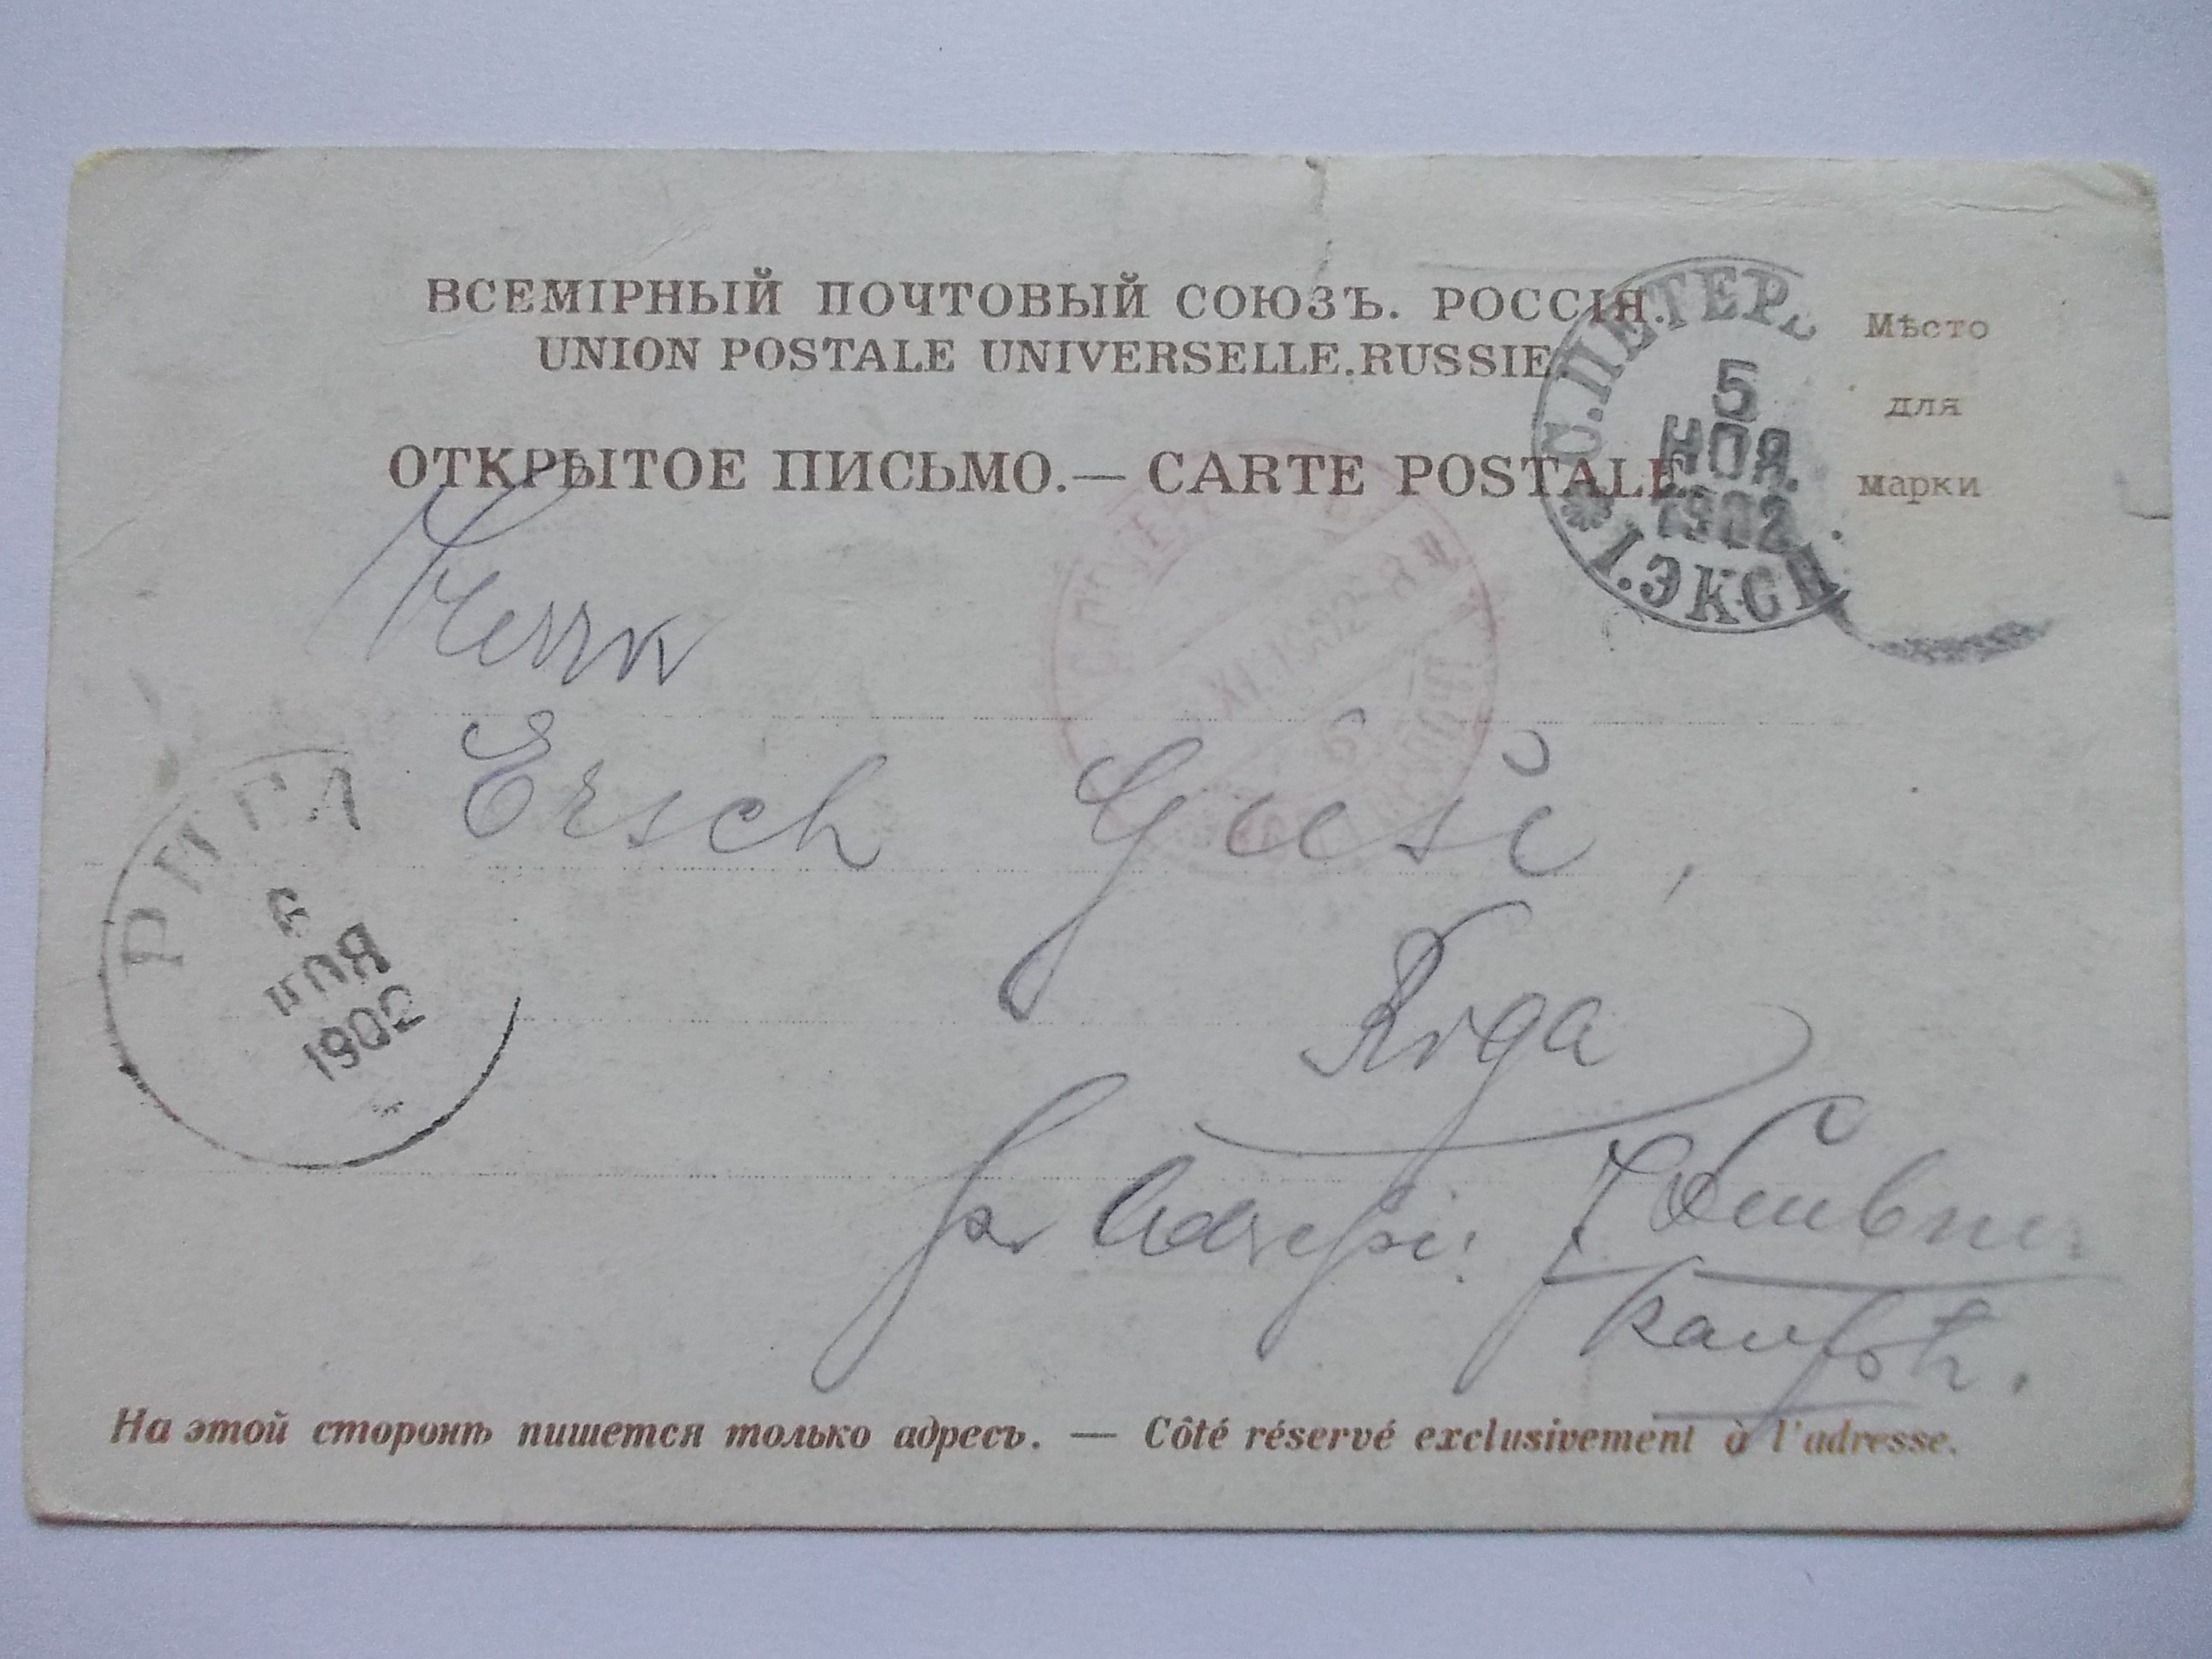 ВСЕМІРНЫЙ ПОЧТОВЫЙ СОЮЗЪ. РОССІЯ.
UNION POSTALE UNIVERSELLE. RUSSIE.
ОТКРЫТОЕ ПИСЬМО. — CARTE POSTALE
Мѣсто
для
марки
С.ПЕТЕР
5
НОЯ.
1902
I.ЭКСП
XI.1902
6
Herrn
Ersch
Riga
РИГА
6
НОЯ
1902
pr
На этой сторонѣ пишется только адресъ. — Côté réservé exclusivement à l'adresse.